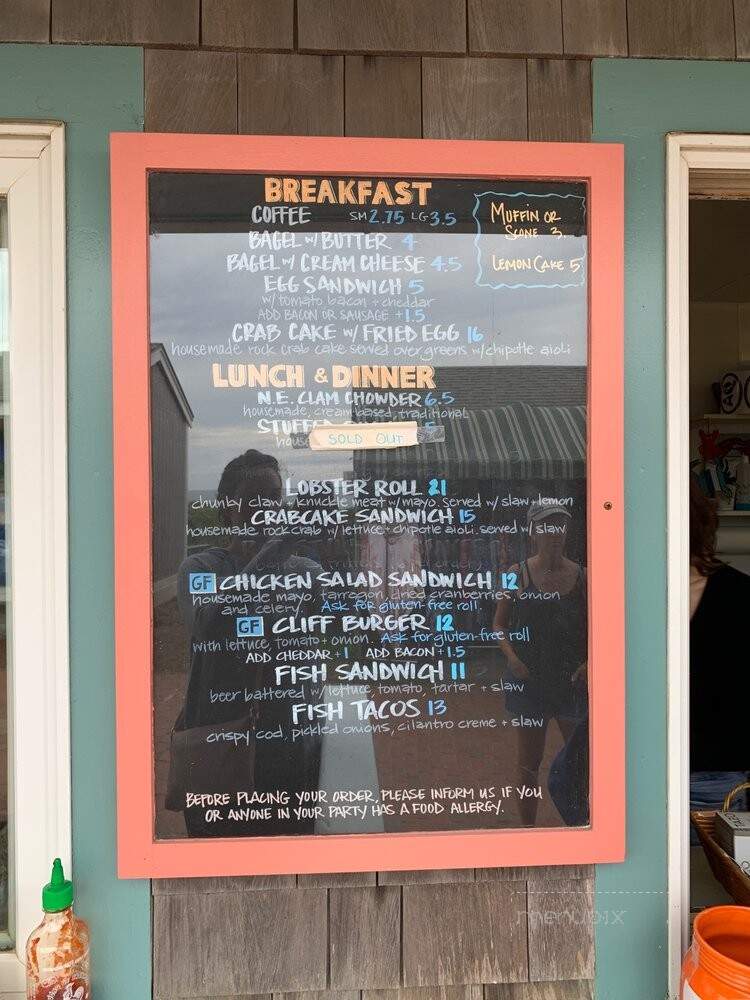 BREAKFAST
COFFEE SM 2.75 LG 3.5
BAGEL w/ BUTTER 4
BAGEL w/ CREAM CHEESE 4.5
EGG SANDWICH 5
w/ tomato bacon + cheddar
ADD BACON OR SAUSAGE +1.5
CRAB CAKE w/ FRIED EGG 16
housemade rock crab cake served over greens w/ chipotle aioli
MUFFIN OR
SCONE 3.
LEMON CAKE 5
LUNCH & DINNER
N.E. CLAM CHOWDER 6.5
housemade, cream based, traditional
STUFFED
SOLD OUT
LOBSTER ROLL 21
chunky claw + knuckle meat w/ mayo. served w/ slaw + lemon
CRABCAKE SANDWICH 15
housemade rock crab w/ lettuce + chipotle aioli. served w/ slaw
GF CHICKEN SALAD SANDWICH 12
housemade mayo, tarragon, dried cranberries, onion
and celery. Ask for gluten-free roll.
GF CLIFF BURGER 12
with lettuce, tomato + onion. Ask for gluten-free roll
ADD CHEDDAR +1 ADD BACON +1.5
FISH SANDWICH 11
beer battered w/ lettuce, tomato, tartar + slaw
FISH TACOS 13
crispy cod, pickled onions, cilantro creme + slaw
BEFORE PLACING YOUR ORDER, PLEASE INFORM US IF YOU
OR ANYONE IN YOUR PARTY HAS A FOOD ALLERGY.
menupix